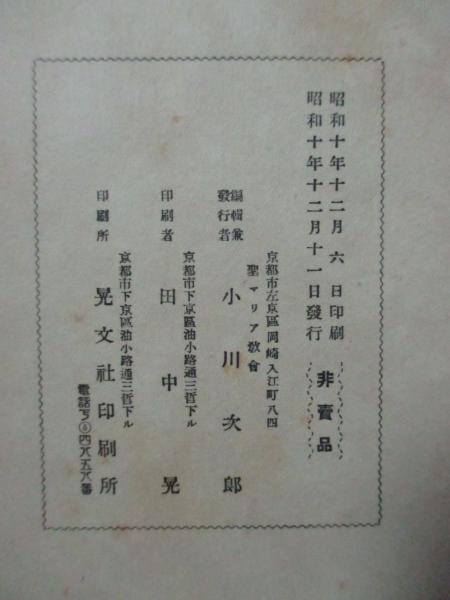 昭和十年十二月六日印刷
昭和十年十二月十一日發行
非賣品
京都市左京區岡崎入江町八四
聖マリア敎會
編輯兼
發行者
小川次郎
京都市下京區油小路通三哲下ル
印刷者
田中晃
京都市下京區油小路通三哲下ル
印刷所
晃文社印刷所
電話下⑥四八五八番